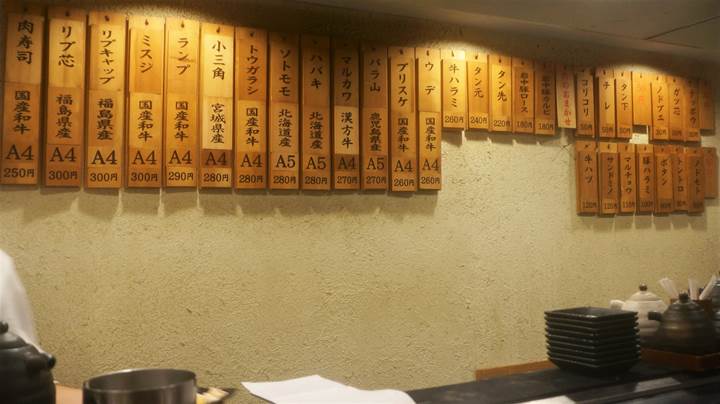 肉寿司 国産和牛 A4 250円
リブ芯 福島県産 A4 300円
リブキャップ 福島県産 A4 300円
ミスジ 国産和牛 A4 300円
ランプ 国産和牛 A4 290円
小三角 宮城県産 A4 280円
トウガラシ 国産和牛 A4 280円
ソトモモ 北海道産 A5 280円
ハバキ 北海道産 A5 280円
マルカワ 漢方和牛 A4 270円
バラ山 鹿児島県産 A5 270円
ブリスケ 国産和牛 A4 260円
ウデ 国産和牛 A4 260円
牛ハラミ 260円
タン元 240円
タン先 220円
岩中豚ロース 180円
岩中豚カルビ 180円
おまかせ
コリコリ
チレ
タン下
ノドブエ
ガツ芯
牛ハツ 120円
サンドミノ
マルチョウ
豚ハラミ 100円
ボタン
トントロ